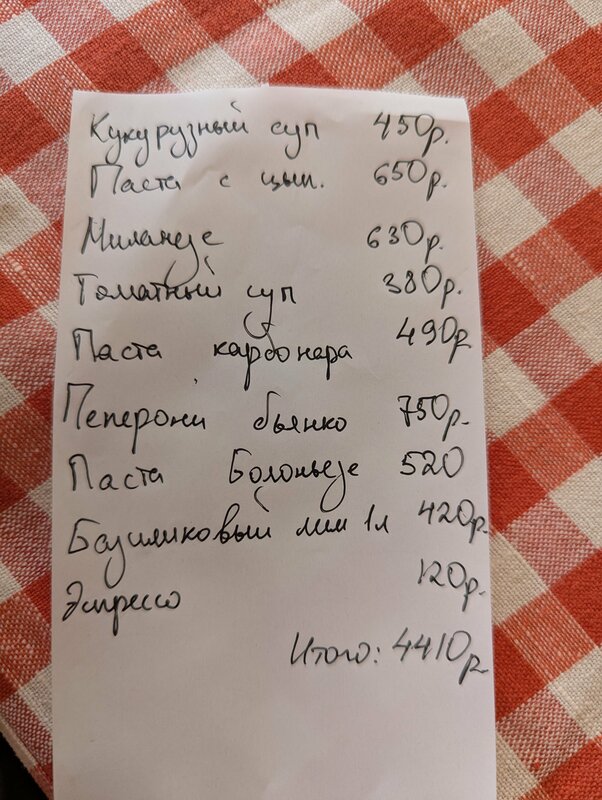 Кукурузный суп 450р.
Паста с цып. 650р.
Миланезе 630р.
Томатный суп 380р.
Паста карбонара 490р
Пеперони бьянко 750р.
Паста Болоньезе 520
Базиликовый лим 1л 420р.
Эспрессо 120р.
Итого: 4410р